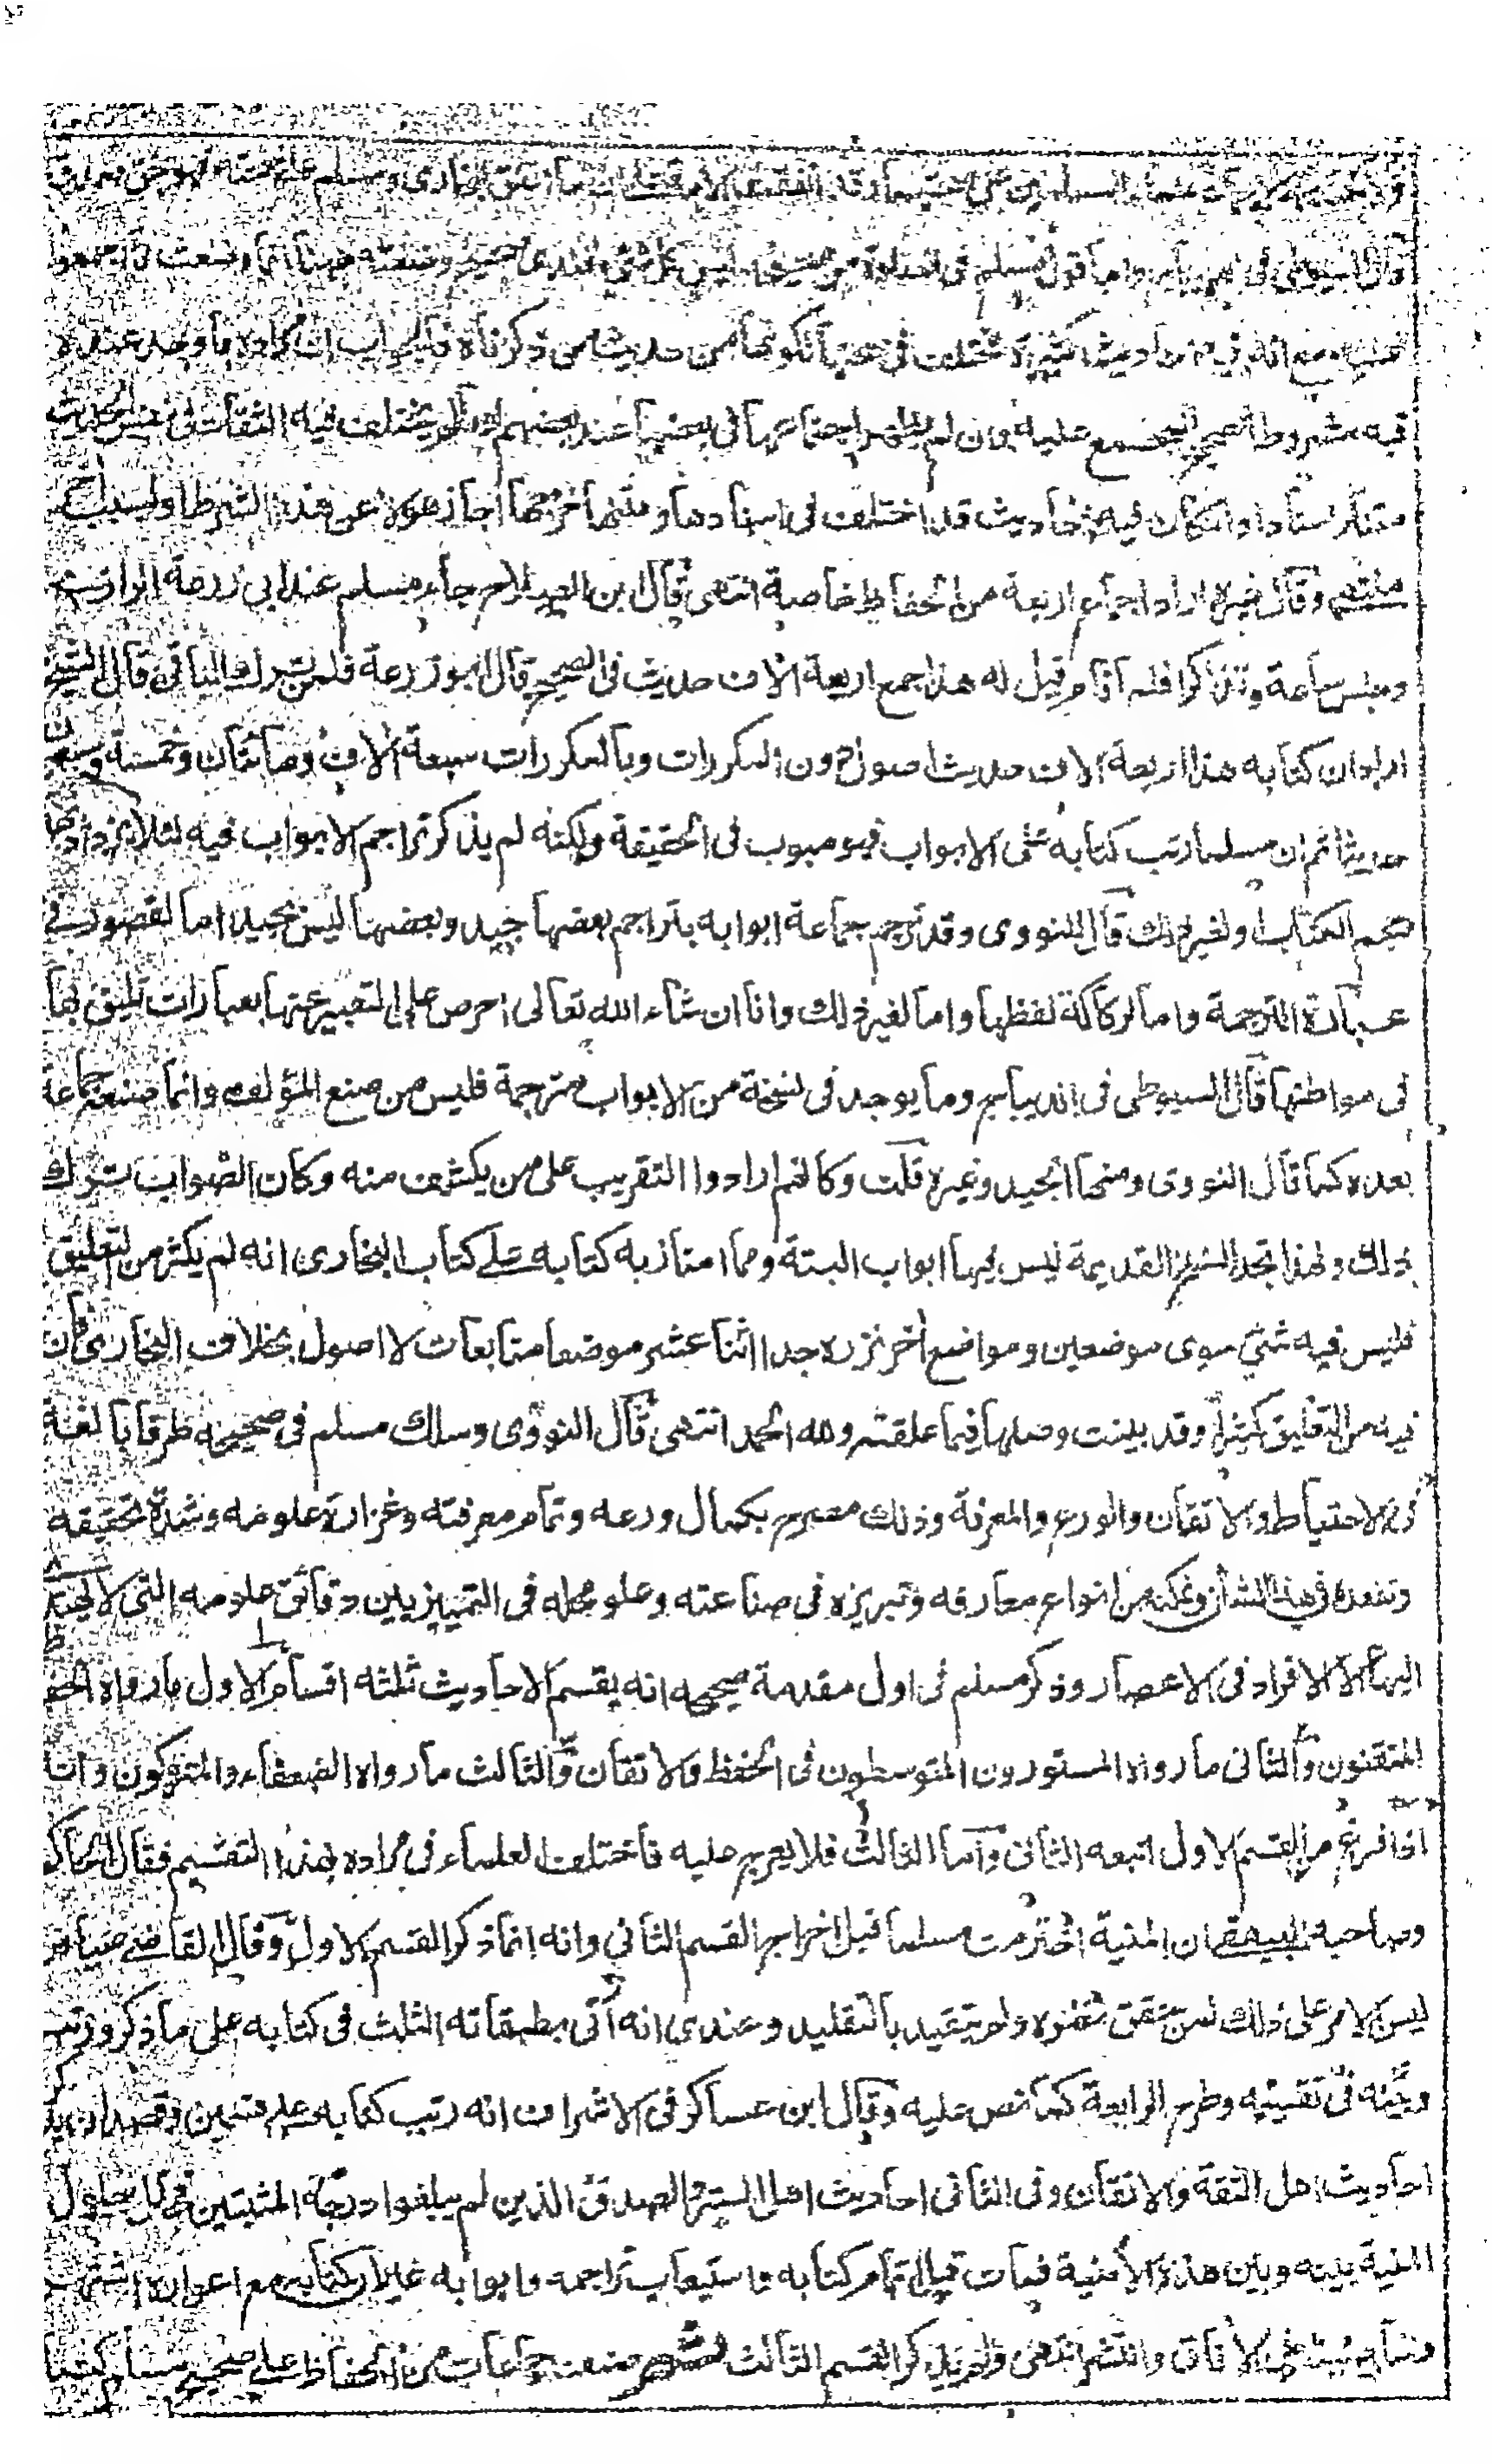 علماء المسلمين على صحتهما وقد البخاري ومسلم على صحته
قال السيوطي في الديباج واما قول مسلم في صحيحه ليس كل شئ عندي صحيح وضعته ههنا انما وضعت ما اجمعوا
عليه مع ان فيه احاديث كثيرة مختلف في صحتها لكونها من حديث من ذكرناه فالجواب ان مراده ما وجد عنده
فيه شروط الصحيح المجمع عليه وان لم يظهر اجتماعها في بعضها عند بعضهم او انه لم يختلف فيه الثقات في نفس الحديث
متنا او اسنادا وان كان فيه احاديث قد اختلف في اسنادها ومتنها عن هذا الشرط او لسبب
وقال غيره اراد اجماع اربعة من الحفاظ خاصة انتهى قال ابن الصلاح جاء مسلم عند ابي زرعة الرازي
وجلس ساعة وتذاكرا فلما قام قيل له هذا جمع اربعة آلاف حديث في الصحيح قال ابو زرعة فلمن ترك الباقي قال الشيخ
اراد ان كتابه هذا اربعة آلاف حديث اصول دون المكررات وبالمكررات سبعة آلاف ومائتان وخمسة وسبعون
حديثا ثم ان مسلما رتب كتابه على الابواب فهو مبوب في الحقيقة ولكنه لم يذكر تراجم الابواب فيه لئلا يزداد بها
حجم الكتاب او لغير ذلك قال النووي وقد ترجم جماعة ابوابه بتراجم بعضها جيد وبعضها ليس بجيد اما لقصور في
عبارة الترجمة واما لركاكة لفظها واما لغير ذلك وانا ان شاء الله تعالى احرص على التعبير عنها بعبارات تليق بها
في مواطنها قال السيوطي في الديباج وما يوجد في نسخة من الابواب مترجمة فليس من صنع المؤلف وانما صنعه جماعة
بعده كما قال النووي ومنها الجيد وغيره قلت وكانهم ارادوا التقريب على من يكشف منه وكان الصواب ترك
ذلك ولهذا تجد النسخ القديمة ليس فيها ابواب البتة ومما امتاز به كتابه على كتاب البخاري انه لم يكثر من التعليق
فليس فيه شئ سوى موضعين ومواضع أخر نزره جدا اثنا عشر موضعا متابعات لا اصول بخلاف البخاري فان
فيه من التعليق كثيرا وقد بينت وصلها فيما علقته ولله الحمد انتهى قال النووي وسلك مسلم في صحيحه طرقا بالغة
في الاحتياط والاتقان والورع والمعرفة وذلك مصرح بكمال ورعه وتمام معرفته وغزارة علومه وشدة تحقيقه
وتفقده في هذا الشأن وتمكنه من انواع معارفه وتبريزه في صناعته وعلو محله في التمييز بين دقائق علومه التي لا يهتدي
اليها الا الافراد في الاعصار وذكر مسلم في اول مقدمة صحيحه انه يقسم الاحاديث ثلثه اقسام الاول ما رواه الحفاظ
المتقنون والثاني ما رواه المستورون المتوسطون في الحفظ والاتقان والثالث ما رواه الضعفاء والمتروكون وانه
اذا فرغ من القسم الاول اتبعه الثاني واما الثالث فلا يعرج عليه فاختلف العلماء في مراده بهذا التقسيم فقال الحاكم
وصاحبه البيهقي ان المنية اخترمت مسلما قبل اخراج القسم الثاني وانه انما ذكر القسم الاول وقال القاضي عياض
ليس الامر على ذلك لمن حقق نظره ولم يتقيد بالتقليد وعندي انه أتى بطبقاته الثلث في كتابه على ما ذكر ورتب
وبينه في تقسيمه وطرح الرابعة كما نص عليه وقال ابن عساكر في الاشراف انه رتب كتابه على قسمين وقصد ان يذكر
احاديث اهل الثقة والاتقان وفي الثاني احاديث اهل الستر والصدق الذين لم يبلغوا درجة المثبتين فحال حلول
المنية بينه وبين هذه الأمنية فمات قبل اتمام كتابه واستيعاب تراجمه وابوابه غير ان كتابه مع اعوازه اشتهر
وسار صيته في الآفاق وانتشر انتهى ولم يذكر القسم الثالث ثم صنف جماعات من الحفاظ على صحيح مسلم كتبا